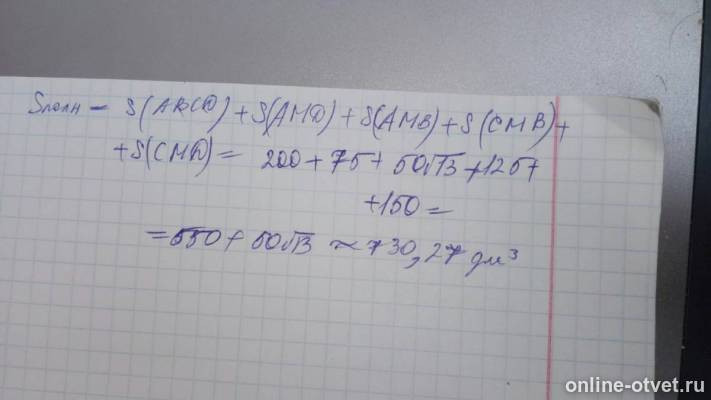 Sполн = S(ABCD) + S(AMD) + S(AMB) + S(CMB) +
+ S(CMD) = 200 + 75 + 50√13 + 125+
+150 =
= 550 + 50√13 ≈ 730,27 дм³
online-otvet.ru